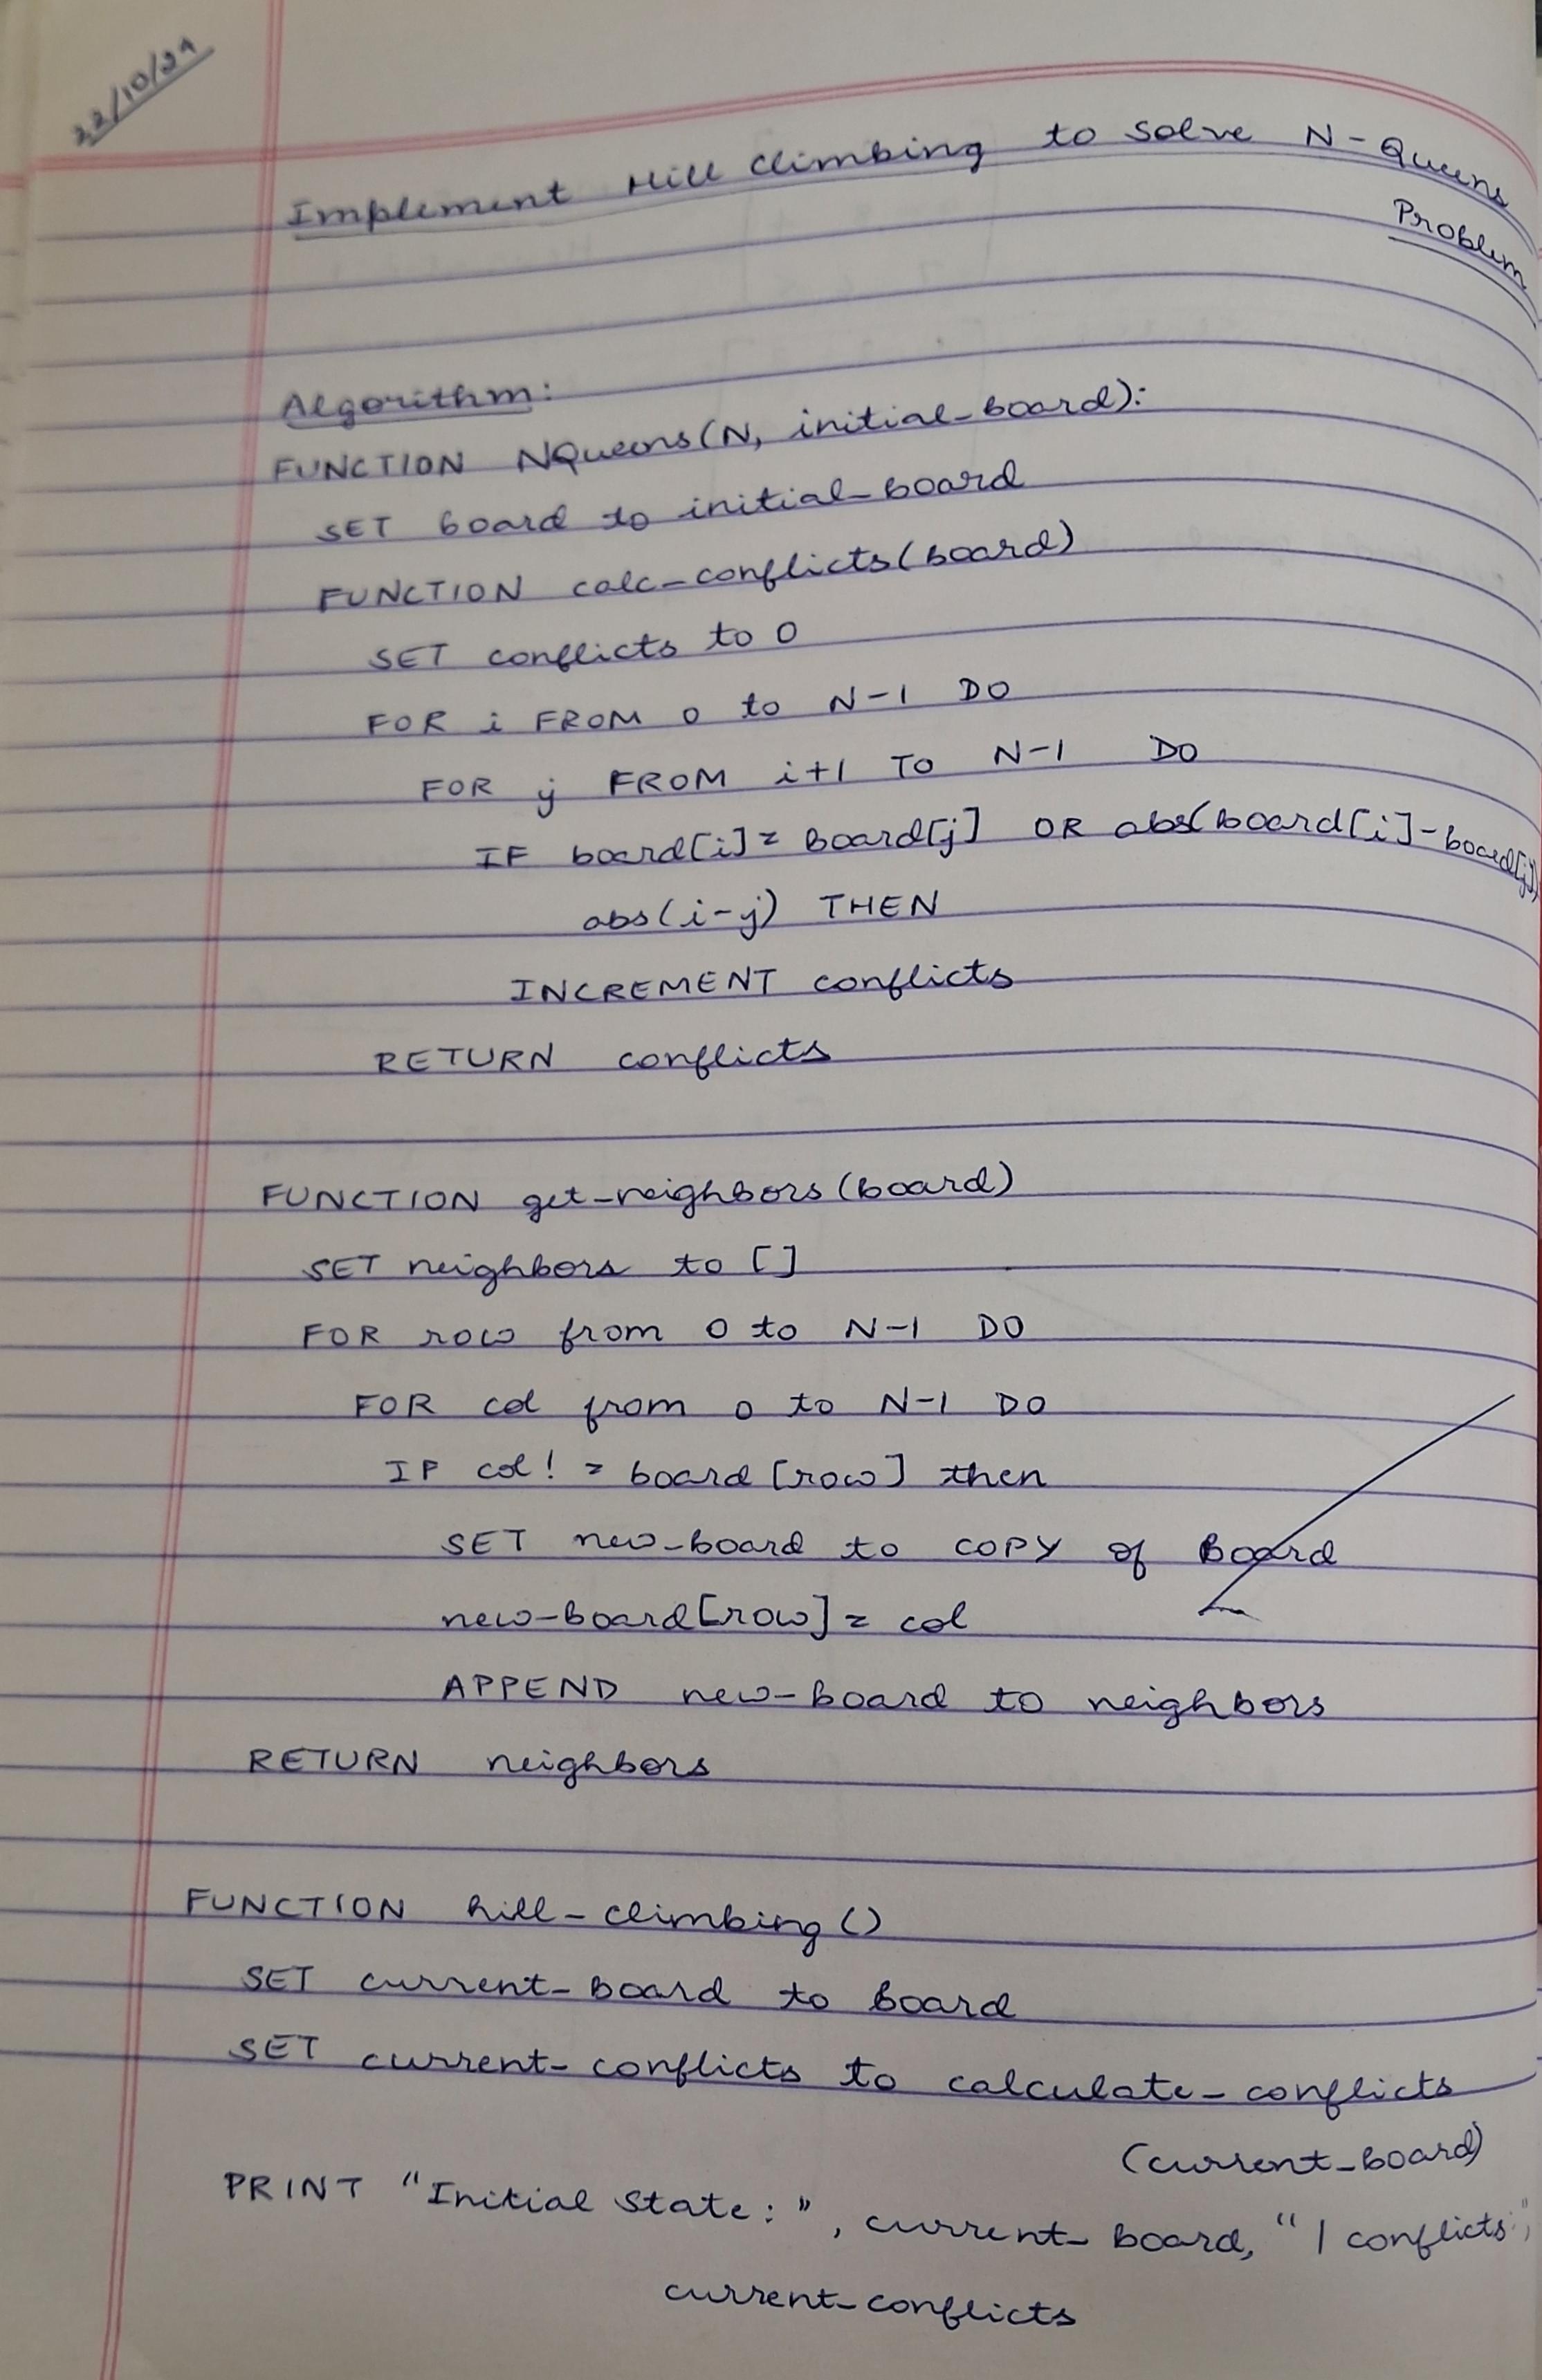 22/10/24
Implement Hill Climbing to solve N-Queens
Problem
Algorithm:
FUNCTION NQueens(N, initial_board):
SET board to initial_board
FUNCTION calc_conflicts(board)
SET conflicts to 0
FOR i FROM 0 to N-1 DO
FOR j FROM i+1 TO N-1 DO
IF board[i] = board[j] OR abs(board[i]-board[j])
abs(i-j) THEN
INCREMENT conflicts
RETURN conflicts
FUNCTION get_neighbors(board)
SET neighbors to []
FOR row from 0 to N-1 DO
FOR col from 0 to N-1 DO
IF col != board[row] then
SET new_board to COPY of Board
new-board[row] = col
APPEND new-board to neighbors
RETURN neighbors
FUNCTION hill-climbing()
SET current-board to board
SET current-conflicts to calculate-conflicts
(current_board)
PRINT "Initial State:", current-board, "| conflicts:",
current-conflicts